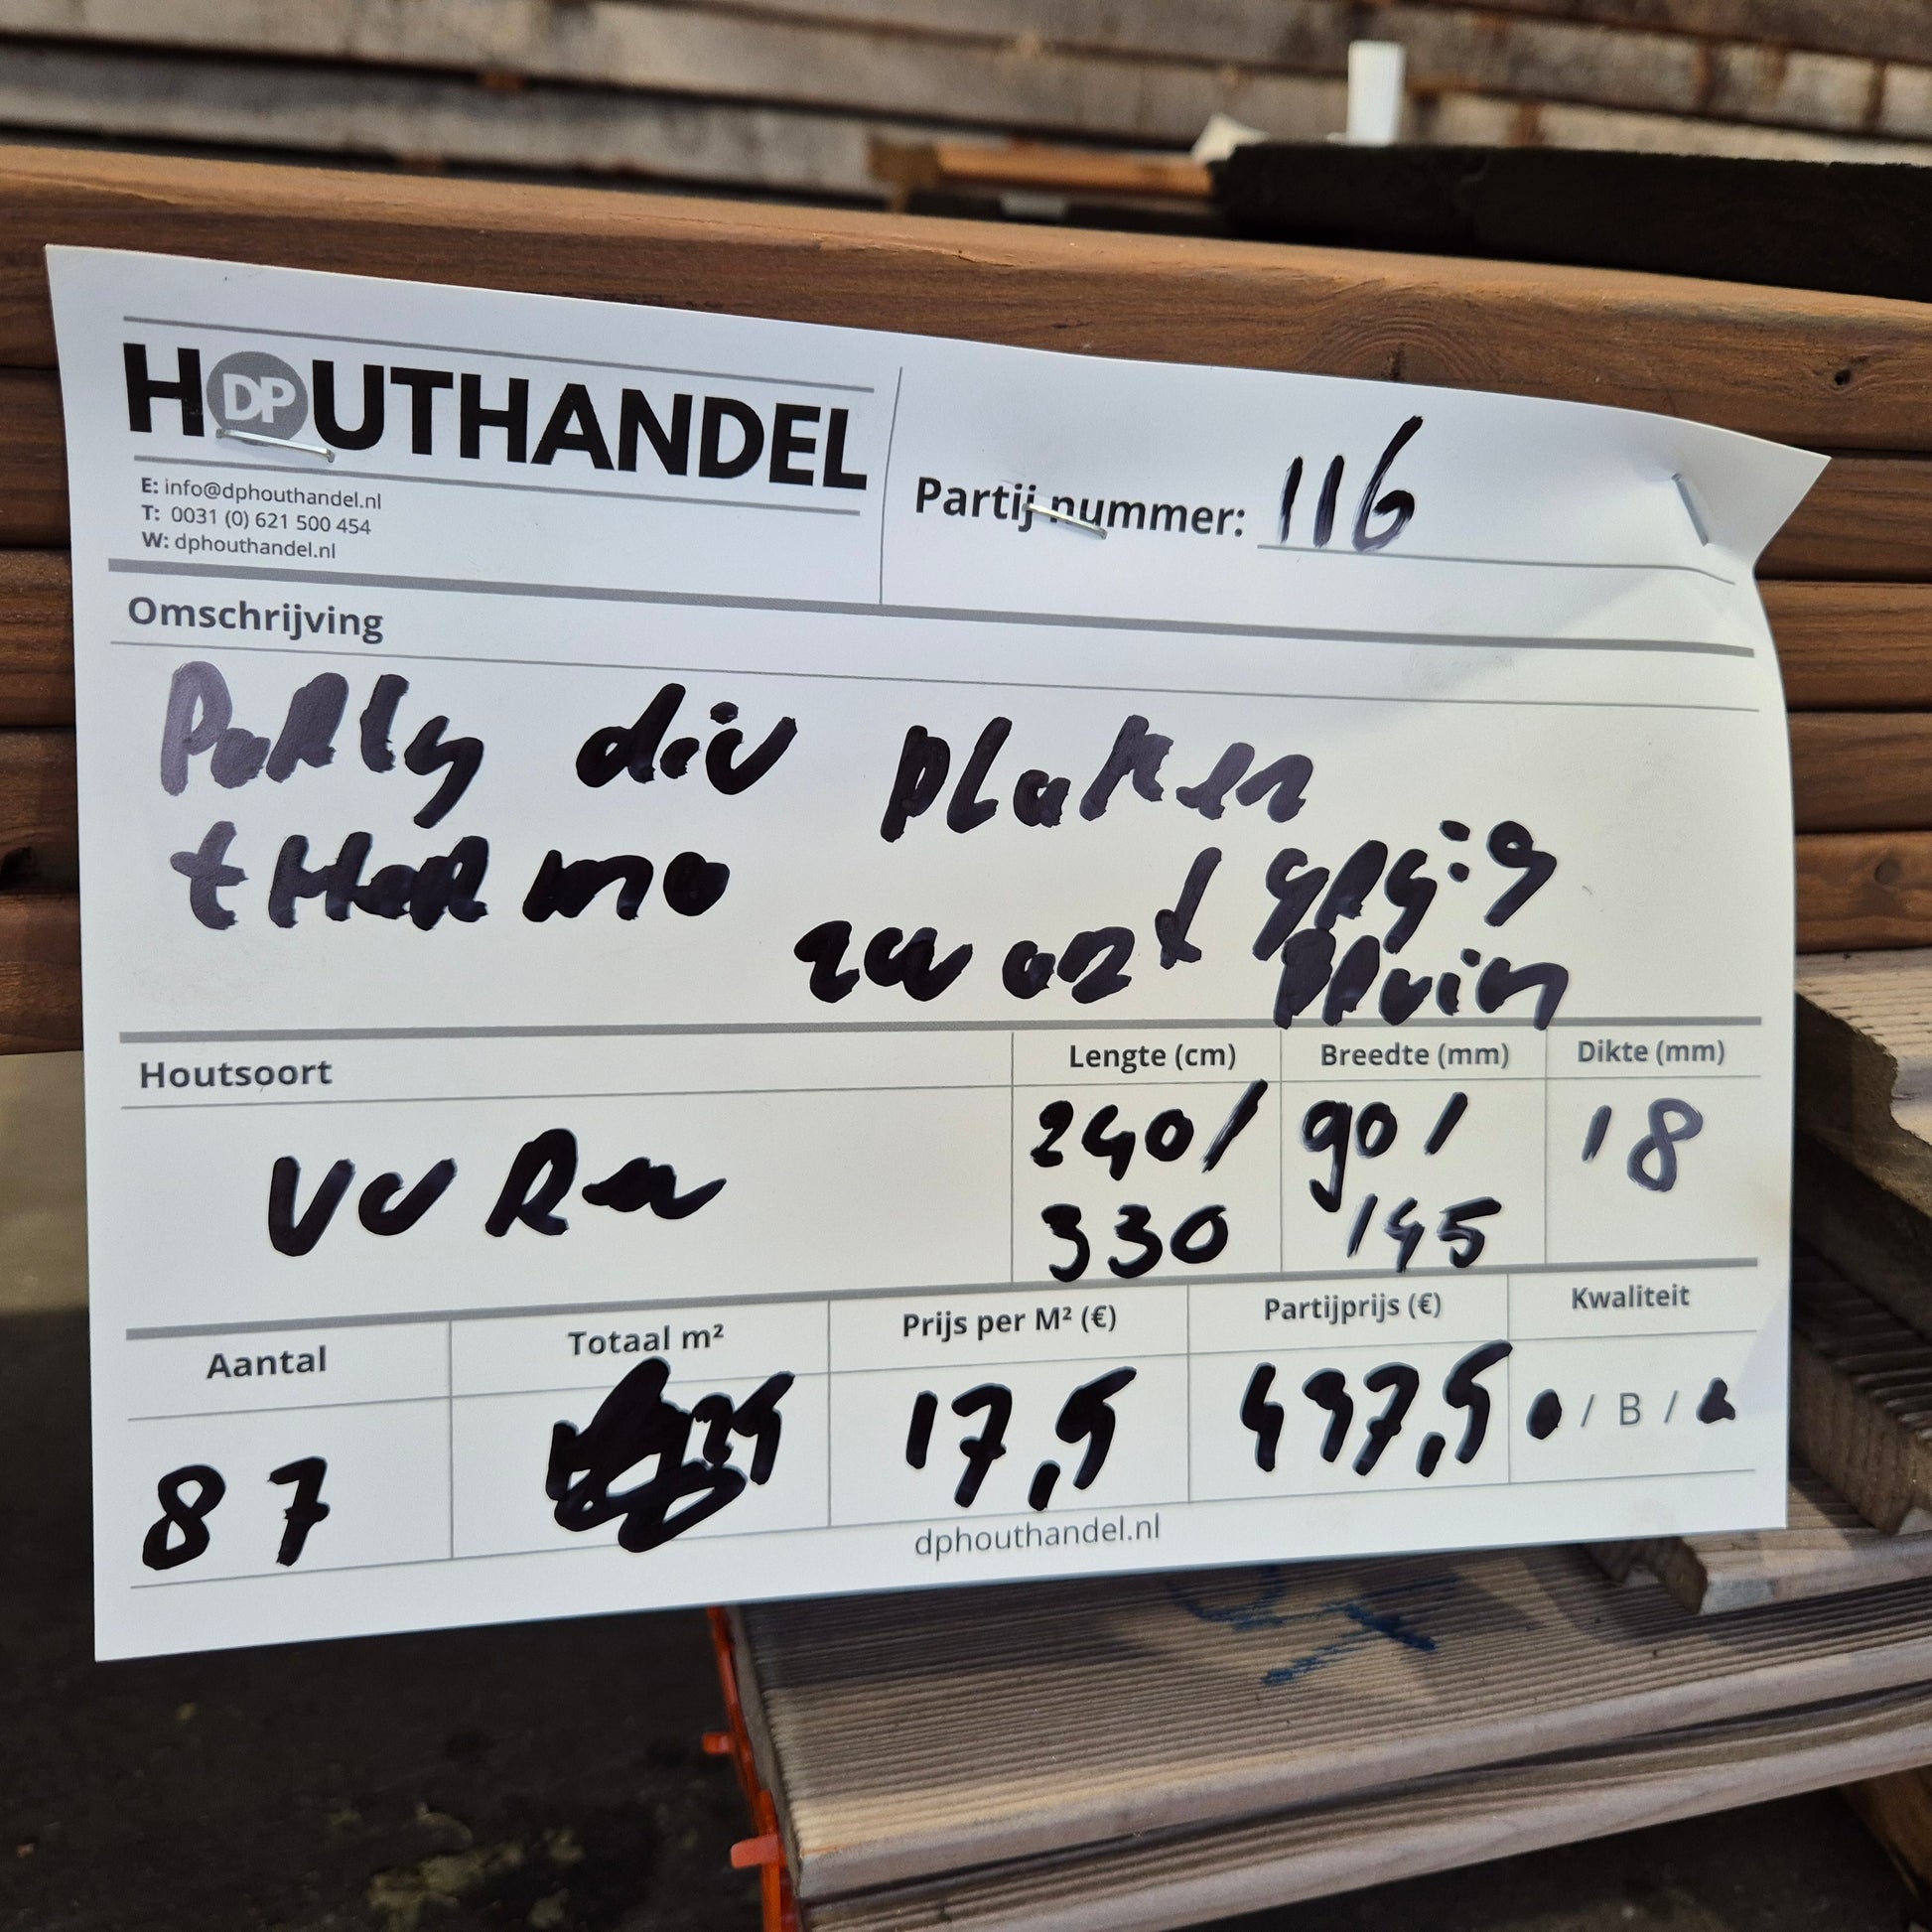 HOUTHANDEL
DP
E: info@dphouthandel.nl
T: 0031 (0) 621 500 454
W: dphouthandel.nl
Partij nummer: 116
Omschrijving
Partij div planken
thermo
zwart grijs
bruin
Houtsoort
Lengte (cm)
Breedte (mm)
Dikte (mm)
Vuren
240/
330
90/
145
18
Aantal
Totaal m²
Prijs per M² (€)
Partijprijs (€)
Kwaliteit
87
17,5
437,5
/ B /
dphouthandel.nl